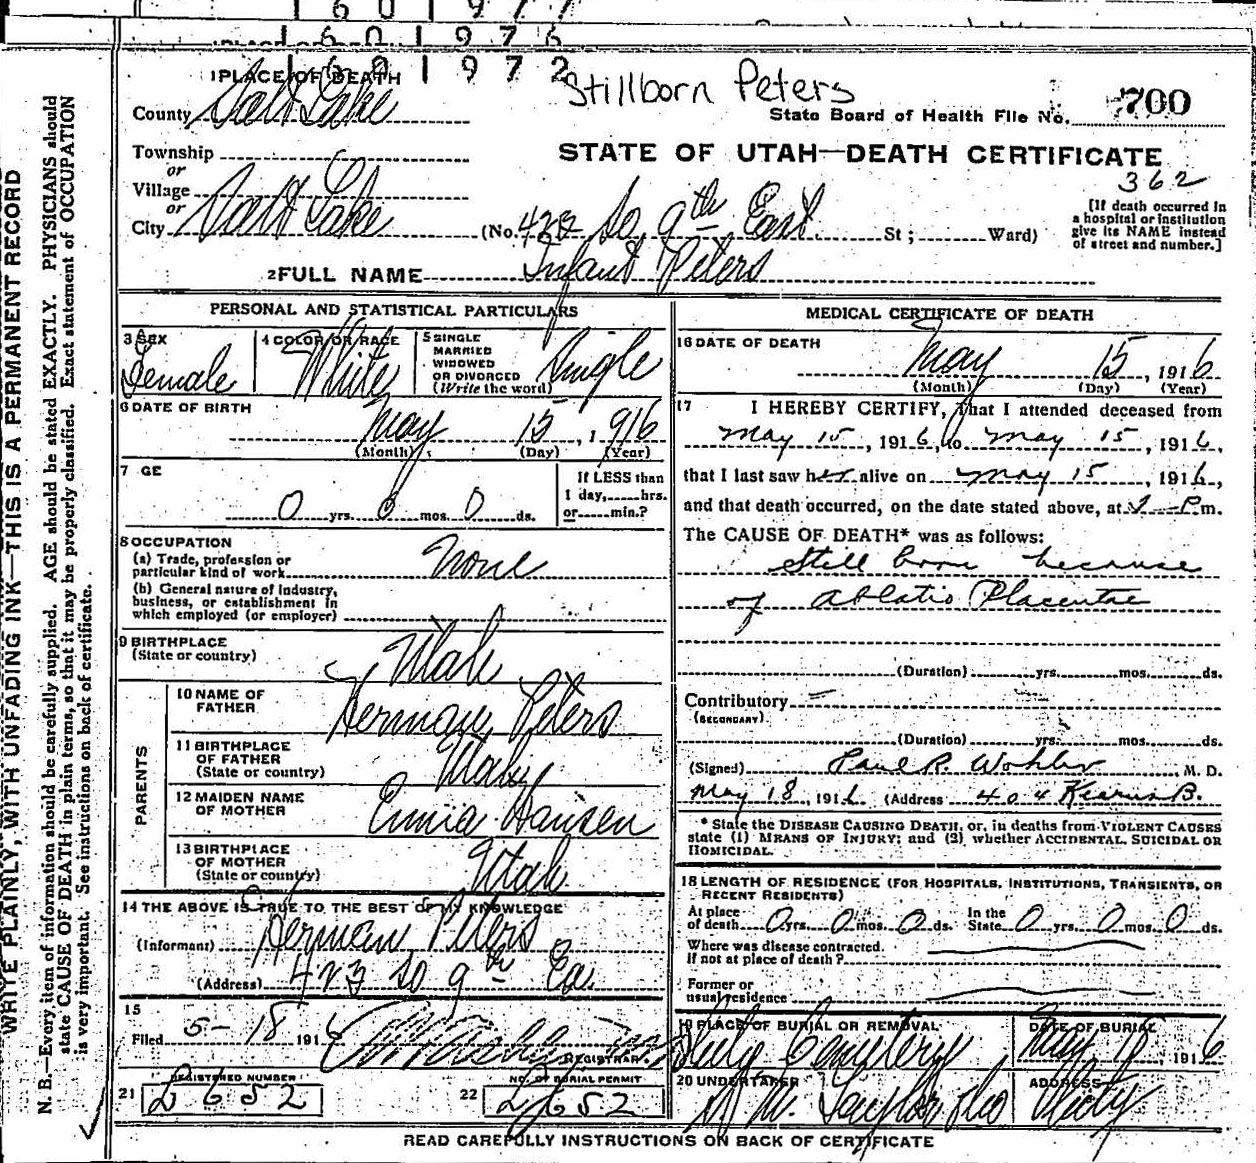 1 6 0 1 9 7 7
1 6 0 1 9 7 6
1 6 0 1 9 7 2
Stillborn Peters
1 PLACE OF DEATH
County Salt Lake
State Board of Health File No. 700
Township
or
Village
or
City Salt Lake
STATE OF UTAH—DEATH CERTIFICATE
362
(No. 423 So 9th East St; Ward)
[If death occurred in
a hospital or institution
give its NAME instead
of street and number.]
2 FULL NAME Infant Peters
PERSONAL AND STATISTICAL PARTICULARS
3 SEX
Female
4 COLOR OR RACE
White
5 SINGLE
MARRIED
WIDOWED
OR DIVORCED
(Write the word)
Single
6 DATE OF BIRTH
May 15, 1916
(Month) (Day) (Year)
7 GE
0 yrs. 0 mos. 0 ds.
If LESS than
1 day, hrs.
or min.?
8 OCCUPATION
(a) Trade, profession or
particular kind of work None
(b) General nature of industry,
business, or establishment in
which employed (or employer)
9 BIRTHPLACE
(State or country) Utah
PARENTS
10 NAME OF
FATHER Herman Peters
11 BIRTHPLACE
OF FATHER
(State or country) Utah
12 MAIDEN NAME
OF MOTHER Hansen
13 BIRTHPLACE
OF MOTHER
(State or country) Utah
14 THE ABOVE IS TRUE TO THE BEST OF MY KNOWLEDGE
(Informant) Herman Peters
(Address) 423 So 9th Ea.
15
Filed 5-18 1916
REGISTRAR.
REGISTERED NUMBER
21 L 652
NO. OF BURIAL PERMIT
22 L 652
MEDICAL CERTIFICATE OF DEATH
16 DATE OF DEATH
May 15, 1916
(Month) (Day) (Year)
17 I HEREBY CERTIFY, That I attended deceased from
May 15, 1916, to May 15, 1916,
that I last saw her alive on May 15, 1916,
and that death occurred, on the date stated above, at P m.
The CAUSE OF DEATH* was as follows:
Still born because
of Ablatio Placentae
(Duration) yrs. mos. ds.
Contributory
(SECONDARY)
(Duration) yrs. mos. ds.
(Signed) Paul R. M. D.
May 18, 1916 (Address 404 Kearns B.
* State the DISEASE CAUSING DEATH, or, in deaths from VIOLENT CAUSES
state (1) MEANS OF INJURY; and (2) whether ACCIDENTAL, SUICIDAL OR
HOMICIDAL.
18 LENGTH OF RESIDENCE (FOR HOSPITALS, INSTITUTIONS, TRANSIENTS, OR
RECENT RESIDENTS)
At place
of death 0 yrs. 0 mos. 0 ds. In the
State 0 yrs. 0 mos. 0 ds.
Where was disease contracted.
If not at place of death?
Former or
usual residence
19 PLACE OF BURIAL OR REMOVAL
City Cemetery
DATE OF BURIAL
May 18, 1916
20 UNDERTAKER
S. M. Taylor
ADDRESS
City
READ CAREFULLY INSTRUCTIONS ON BACK OF CERTIFICATE
WRITE PLAINLY, WITH UNFADING INK—THIS IS A PERMANENT RECORD
N. B.—Every item of information should be carefully supplied. AGE should be stated EXACTLY. PHYSICIANS should
state CAUSE OF DEATH in plain terms, so that it may be properly classified. Exact statement of OCCUPATION
is very important. See instructions on back of certificate.